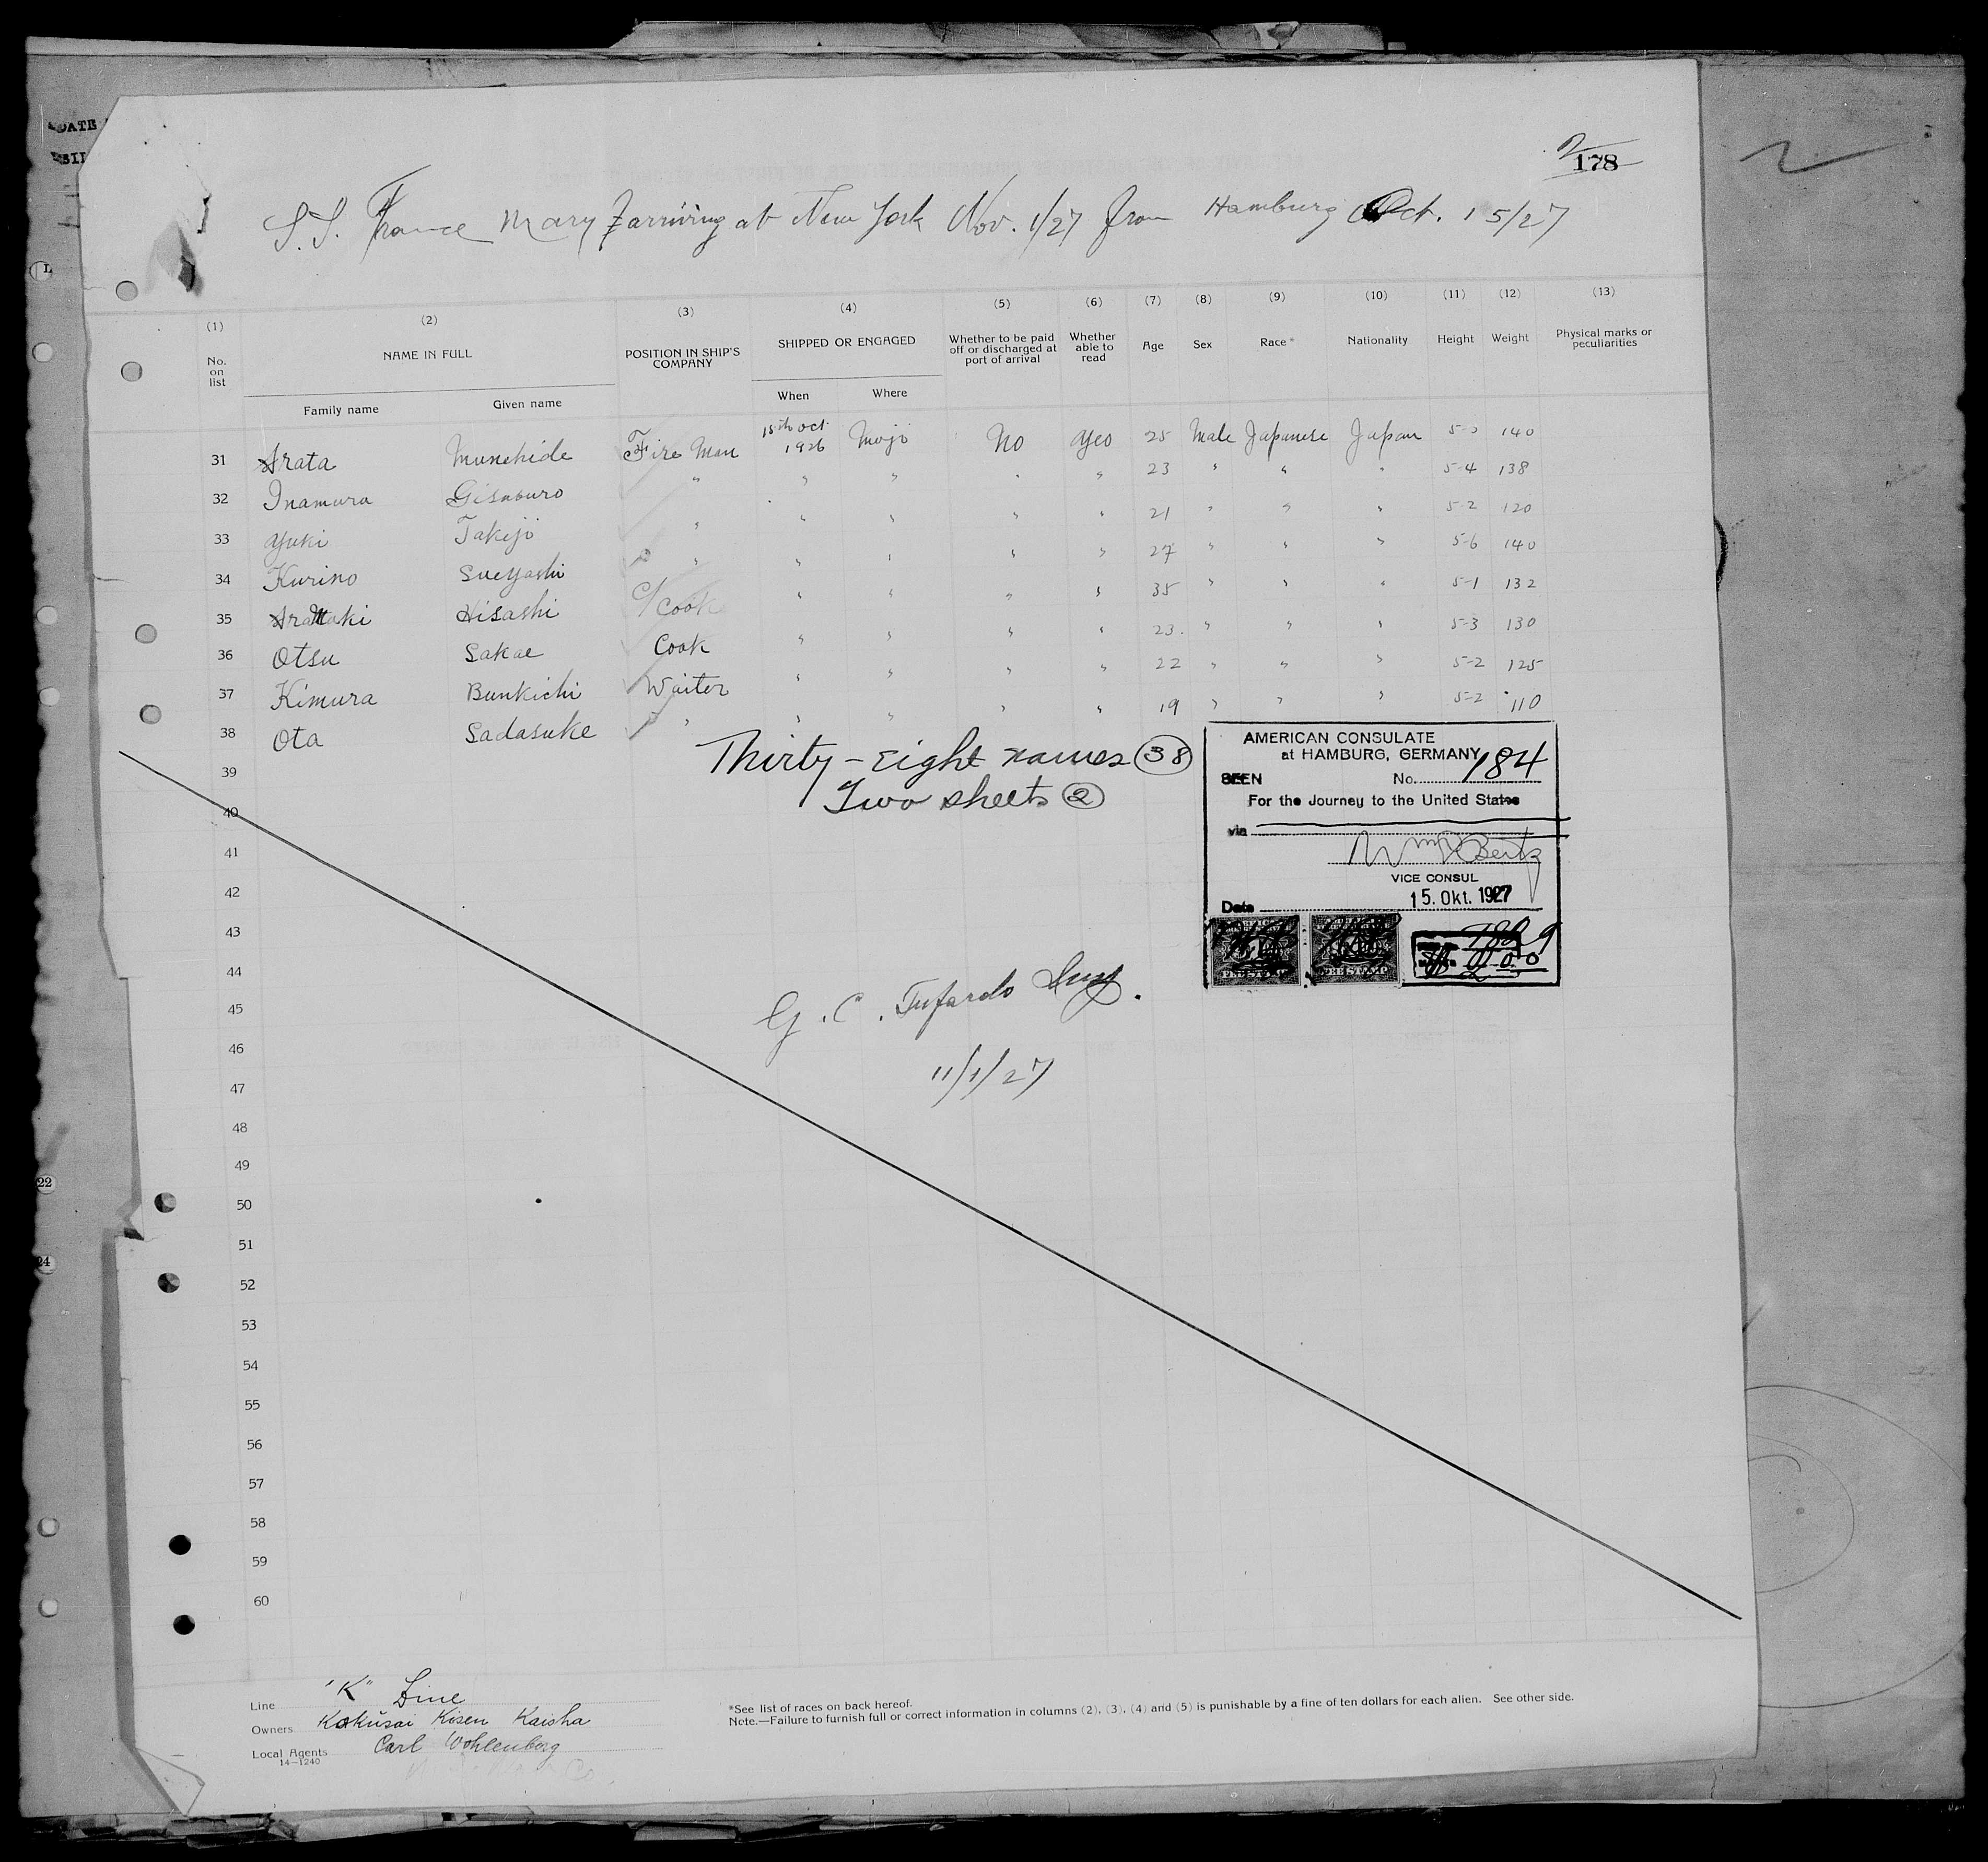 DATE
178
2
S.S. France Mary arriving at New York Nov. 1/27 from Hamburg Oct. 15/27
(1) (2) (3) (4) (5) (6) (7) (8) (9) (10) (11) (12) (13)
No. on list NAME IN FULL POSITION IN SHIP'S COMPANY SHIPPED OR ENGAGED Whether to be paid off or discharged at port of arrival Whether able to read Age Sex Race* Nationality Height Weight Physical marks or peculiarities
Family name Given name When Where
31 Arata Munehide Fire Man 15th Oct. 1926 Moji No Yes 25 Male Japanese Japan 140
32 Inamura Gisaburo " " " " " 23 " " " 5-4 138
33 Yuki Takeji " " " " " 21 " " " 5-2 120
34 Kurino Sueyoshi " " " " " 27 " " " 5-6 140
35 Hisashi C/Cook " " " " 35 " " " 5-1 132
36 Otsu Sakae Cook " " " " 23 " " " 5-3 130
37 Kimura Bunkichi Waiter " " " " 22 " " " 5-2 125
38 Ota Sadasuke " " " " " 19 " " " 5-2 110
Thirty-eight names 38
Two sheets 2
AMERICAN CONSULATE
at HAMBURG, GERMANY
SEEN No. 184
For the Journey to the United States
via
VICE CONSUL
Date 15. Okt. 1927
FEE STAMP FEE STAMP
39
40
41
42
43
44
45
46
47
48
49
50
51
52
53
54
55
56
57
58
59
60
G. C.
11/1/27
Line "K" Line
Owners Kokusai Kisen Kaisha
Local Agents Carl Wohlenberg
14-1240
*See list of races on back hereof.
Note.—Failure to furnish full or correct information in columns (2), (3), (4) and (5) is punishable by a fine of ten dollars for each alien. See other side.
22
24